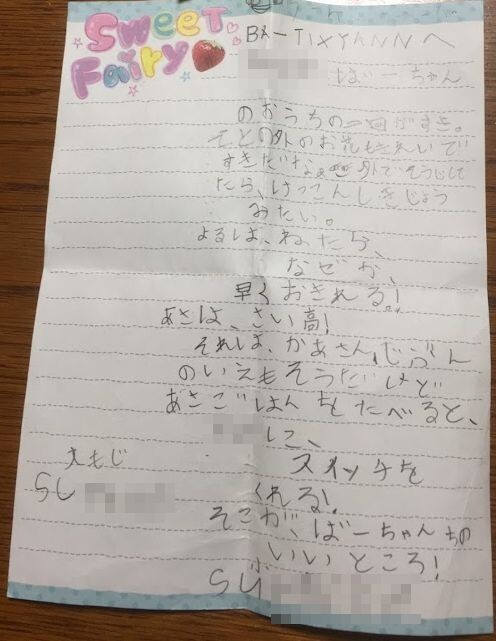 Sweet
Fairy
BA-TIXYANNへ
ばーちゃん
のおうちの一回がすき。
そとの外のお花もきれいで
すきだなぁ 外でそうじして
たら、けっこんしきじょう
みたい。
よるは、ねたら、
なぜか、
早くおきれる!
あさは、さい高!
それは、かあさん、じぶん
のいえもそうだけど
あさごはんをたべると、
に、
スイッチを
くれる!
そこが、ばーちゃんちの
いいところ!
大もじ
SU
小
SU